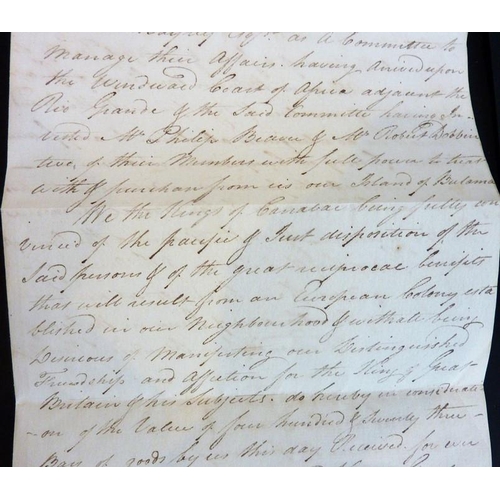 Esqrs. as a Committee to
Manage their Affairs. having Arrived upon
the Windward Coast of Africa adjacent the
Rio Grande & the Said Committee having In-
vested Mr. Philip Beaver & Mr. Robert Dobbin
two, of their Members with full power to treat
with & purchase from us our Island of Bulama
We the Kings of Canabac being fully con
vinced of the pacific & Just disposition of the
Said persons & of the great reciprocal benefits
that will result from an European Colony esta
blished in our Neighbourhood & withall being
Desirous of Manifesting our Distinguished
Friendship and Affection for the King of Great
Britain & his Subjects. do hereby in considerati
-on of the Value of four Hundred & Seventy three
Bars of goods by us this day Received. for ever